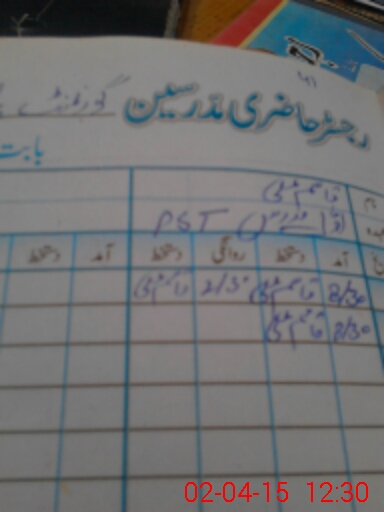 رجسٹر حاضری مدرسین گورنمنٹ
بابت
نام قاسم علی
PST
آمد دستخط روانگی دستخط آمد دستخط
8/30 قاسم علی 2/30 قاسم علی
8/30 قاسم علی
02-04-15 12:30